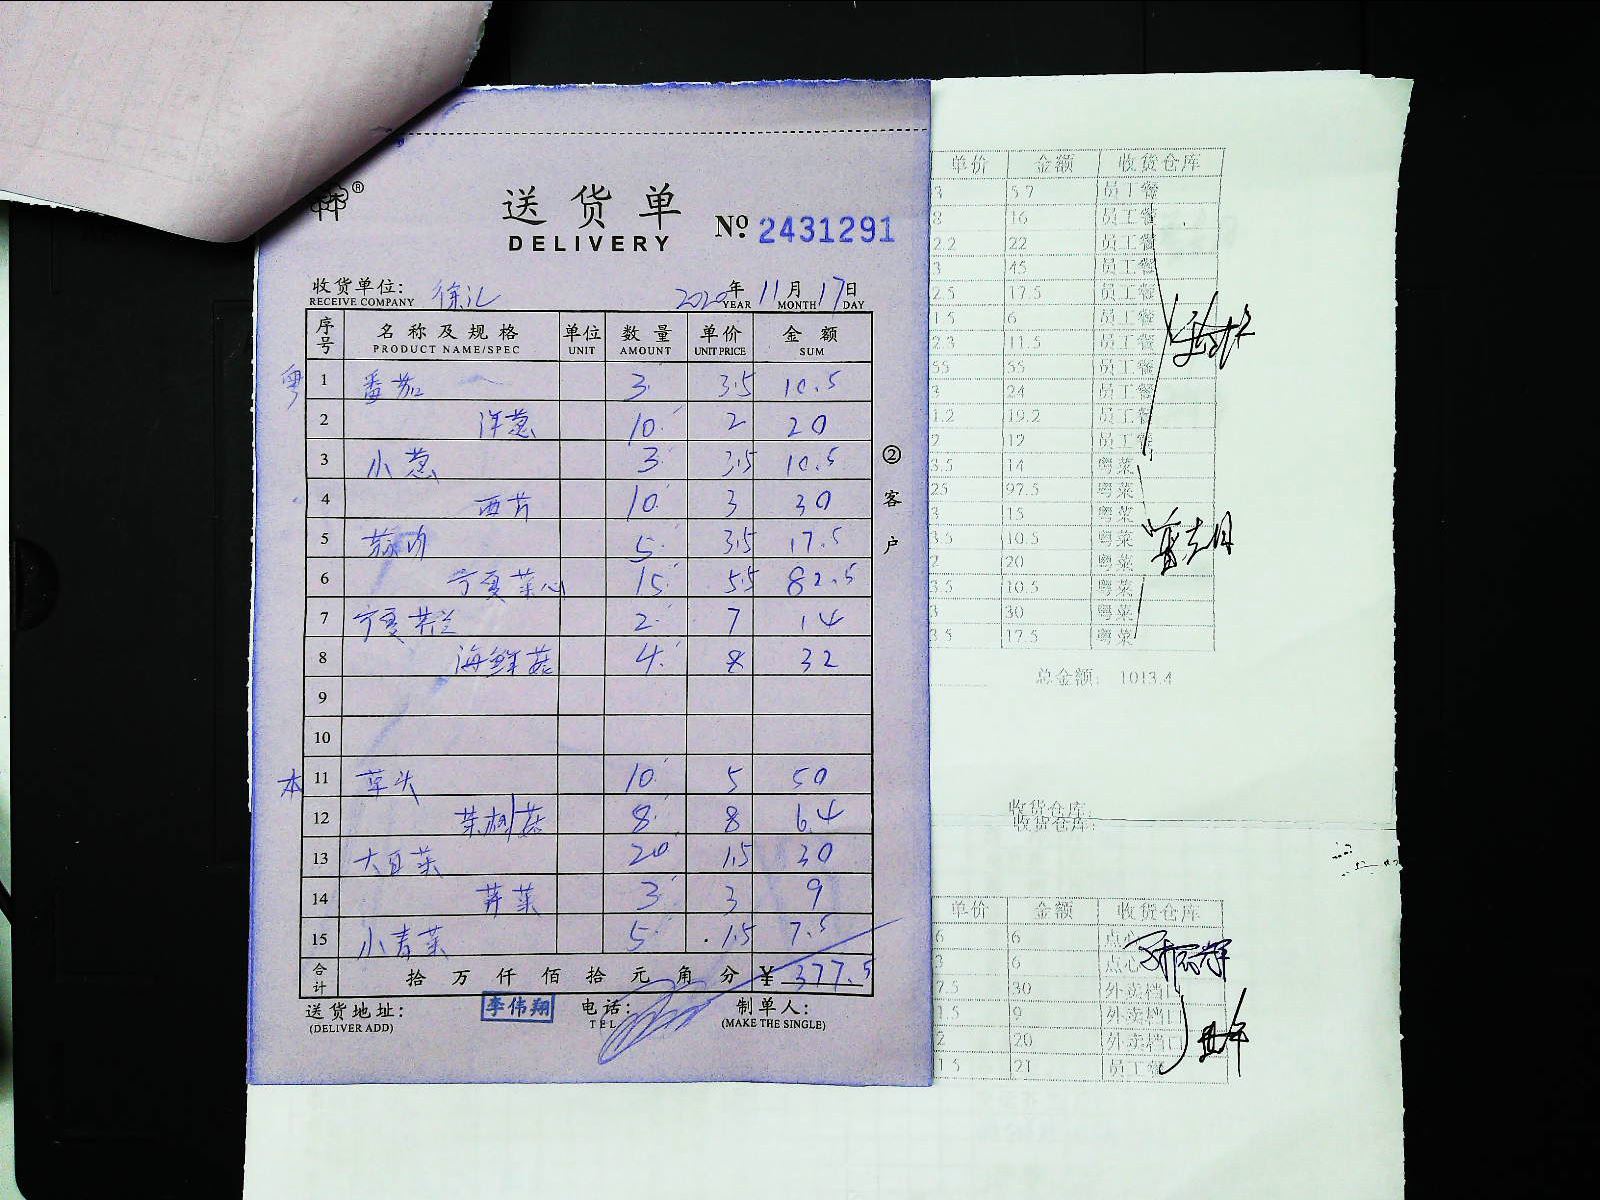 送货单
DELIVERY
No. 2431291
收货单位: 徐汇 2020年11月17日
RECEIVE COMPANY YEAR MONTH DAY
序号 名称及规格 单位 数量 单价 金额
PRODUCT NAME/SPEC UNIT AMOUNT UNIT PRICE SUM
粤 1 番茄 3 3.5 10.5
2 洋葱 10 2 20
3 小葱 3 3.5 10.5
4 西芹 10 3 30
5 蒜肉 5 3.5 17.5
6 宁夏菜心 15 5.5 82.5
7 宁夏芥兰 2 7 14
8 海鲜菇 4 8 32
9
10
本 11 草头 10 5 50
12 茶树菇 8 8 64
13 大豆菜 20 1.5 30
14 荠菜 3 3 9
15 小青菜 5 1.5 7.5
合计 拾 万 仟 佰 拾 元 角 分 ¥ 377.5
送货地址: 李伟翔 电话: 制单人:
(DELIVER ADD) TEL (MAKE THE SINGLE)
② 客户
单价 金额 收货仓库
3 5.7 员工餐
8 16 员工餐
2.2 22 员工餐
3 45 员工餐
2.5 17.5 员工餐
1.5 6 员工餐
2.3 11.5 员工餐
55 55 员工餐
3 24 员工餐
1.2 19.2 员工餐
2 12 员工餐
3.5 14 粤菜
25 97.5 粤菜
3 15 粤菜
3.5 10.5 粤菜
2 20 粤菜
3.5 10.5 粤菜
3 30 粤菜
3.5 17.5 粤菜
总金额: 1013.4
收货仓库:
收货仓库:
单价 金额 收货仓库
6 6 点心
3 6 点心
7.5 30 外卖档口
1.5 9 外卖档口
2 20 外卖档口
1.5 21 员工餐